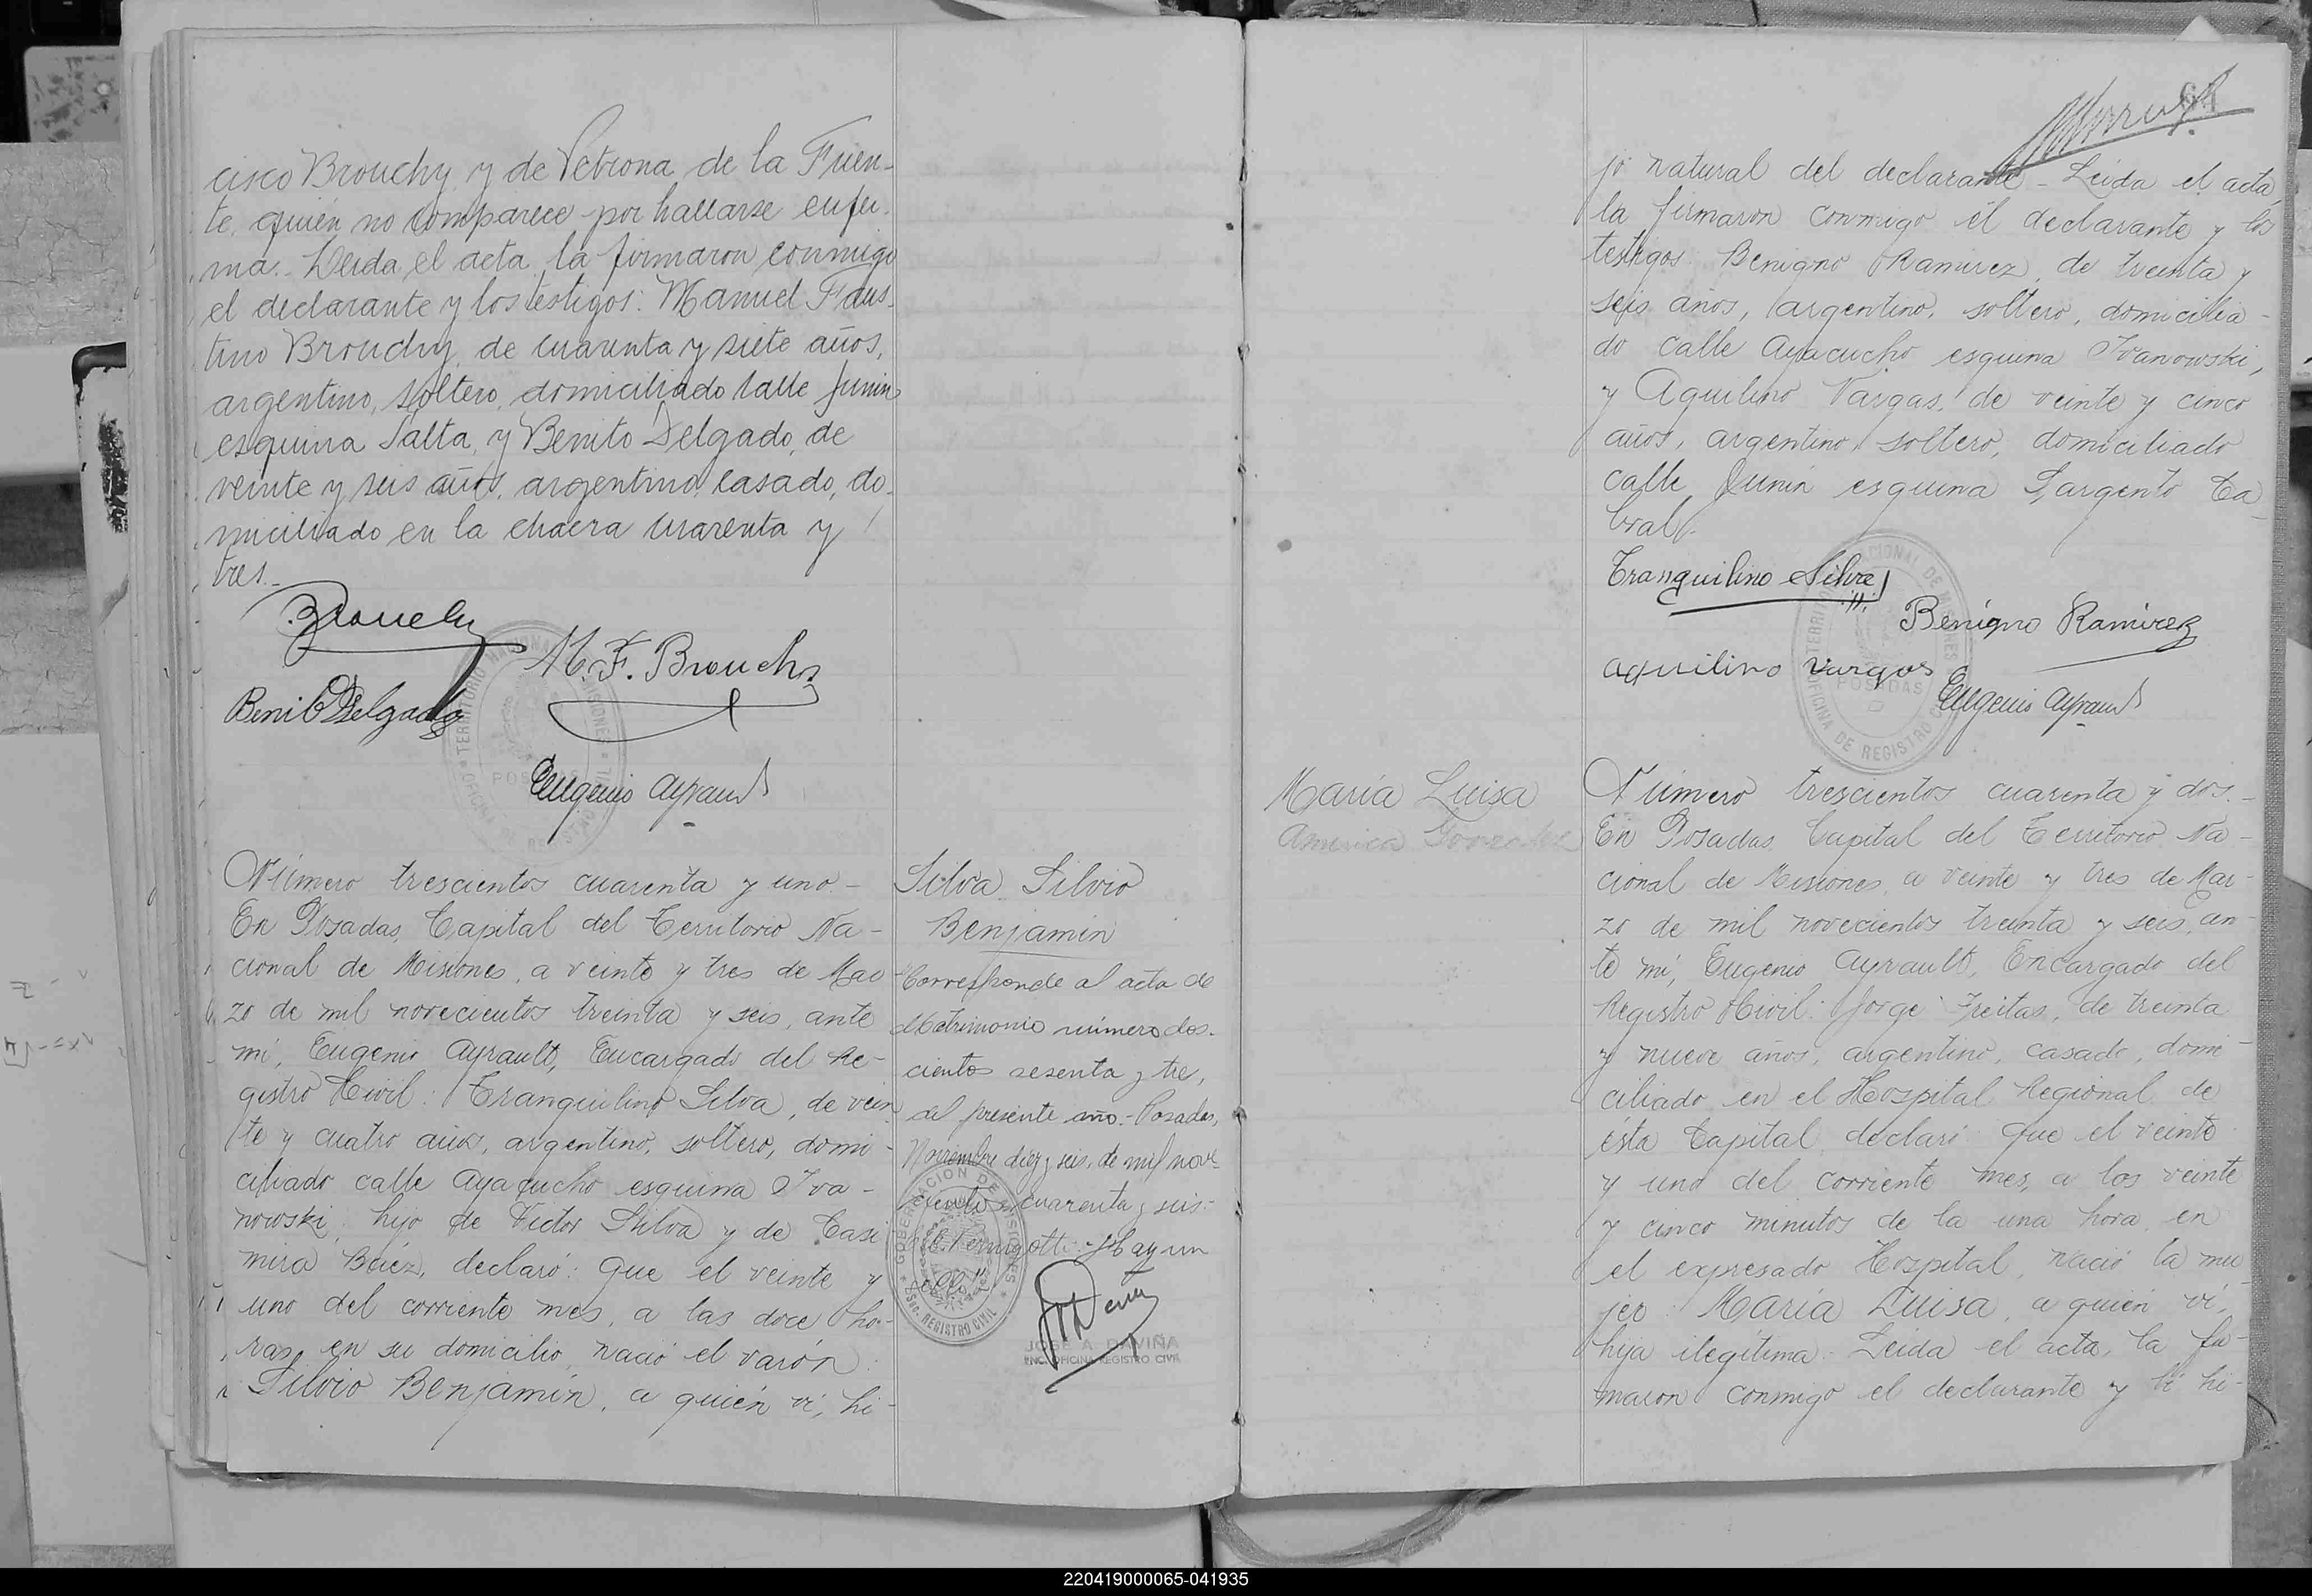 cisco Brouchy y de Petrona de la Fuen-
te, quién no comparece por hallarse enfer-
ma. Leida el acta, la firmaron conmigo
el declarante y los testigos: Manuel Faus-
tino Brouchy, de cuarenta y siete años,
argentino, soltero, domiciliado calle Junin
esquina Salta, y Benito Delgado, de
veinte y seis años, argentino, casado, do-
miciliado en la chacra cuarenta y
tres.-
Brouchy
M. F. Brouchy
Benito Delgado
TERRITORIO NACIONAL DE MISIONES
OFICINA DE REGISTRO CIVIL
POSADAS
Eugenio Ayrault
Número trescientos cuarenta y uno.-
En Posadas, Capital del Territorio Na-
cional de Misiones, a veinte y tres de Mar
zo de mil novecientos treinta y seis, ante
mi, Eugenio Ayrault, Encargado del Re-
gistro Civil: Tranquilino Silva, de vein
te y cuatro años, argentino, soltero, domi-
ciliado calle Ayacucho esquina Iva-
nowski, hijo de Victor Silva y de Casi
mira Báez, declaró: Que el veinte y
uno del corriente mes, a las doce ho-
ras, en su domicilio, nació el varón:
Silvio Benjamín, a quién vi, hi-
Silva Silvio
Benjamín
Corresponde al acta de
Matrimonio número dos-
cientos sesenta y tre,
del presente año.- Posadas,
Noviembre diez y seis, de mil nove-
cientos cuarenta y seis.-
Hay un
GOBERNACION DE MISIONES
REGISTRO CIVIL
JOSE A. DAVIÑA
ENC. OFICINA REGISTRO CIVIL
64
jo natural del declarante.- Leida el acta,
la firmaron conmigo el declarante y los
testigos: Benigno Ramirez, de treinta y
seis años, argentino, soltero, domicilia-
do calle Ayacucho esquina Ivanowski,
y Aquilino Vargas, de veinte y cinco
años, argentino, soltero, domiciliado
calle Junin esquina Sargento Ca-
bral.-
Tranquilino Silva
Benigno Ramirez
aquilino vargas
Eugenio Ayrault
TERRITORIO NACIONAL DE MISIONES
OFICINA DE REGISTRO CIVIL
POSADAS
María Luisa
America Gonzalez
Número trescientos cuarenta y dos.-
En Posadas, Capital del Territorio Na-
cional de Misiones, a veinte y tres de Mar-
zo de mil novecientos treinta y seis, an-
te mi, Eugenio Ayrault, Encargado del
Registro Civil: Jorge Freitas, de treinta
y nueve años, argentino, casado, domi-
ciliado en el Hospital Regional de
ésta Capital, declaró: Que el veinte
y uno del corriente mes, a los veinte
y cinco minutos de la una hora, en
el expresado Hospital, nació la mu-
jer: María Luisa, a quién vi,
hija ilegítima.- Leida el acta, la fir-
maron conmigo el declarante y los